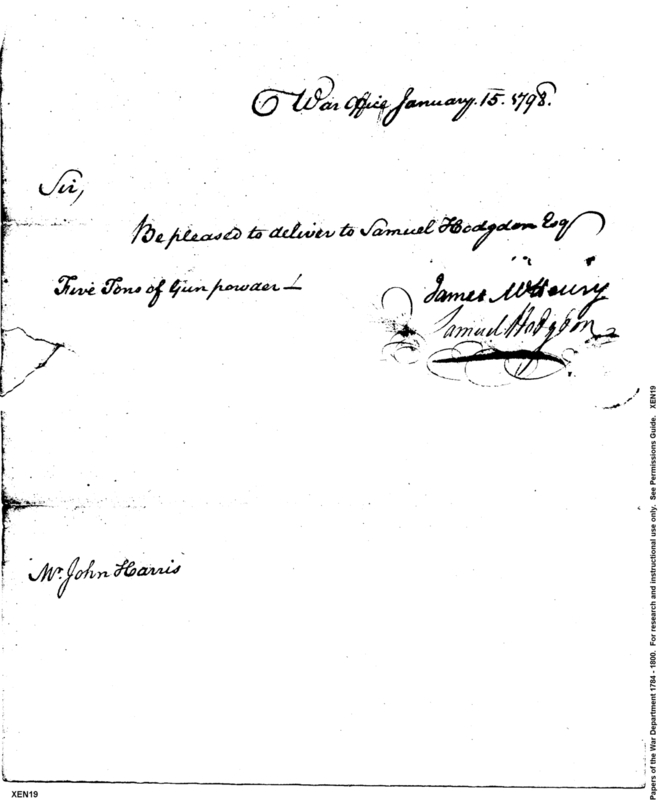 War Office January. 15. 1798.
Sir,
Be pleased to deliver to Samuel Hodgdon Esq
Five Tons of Gun powder—
James McHenry
Samuel Hodgdon
Mr. John Harris
XEN19
Papers of the War Department 1784 - 1800. For research and instructional use only. See Permissions Guide. XEN19